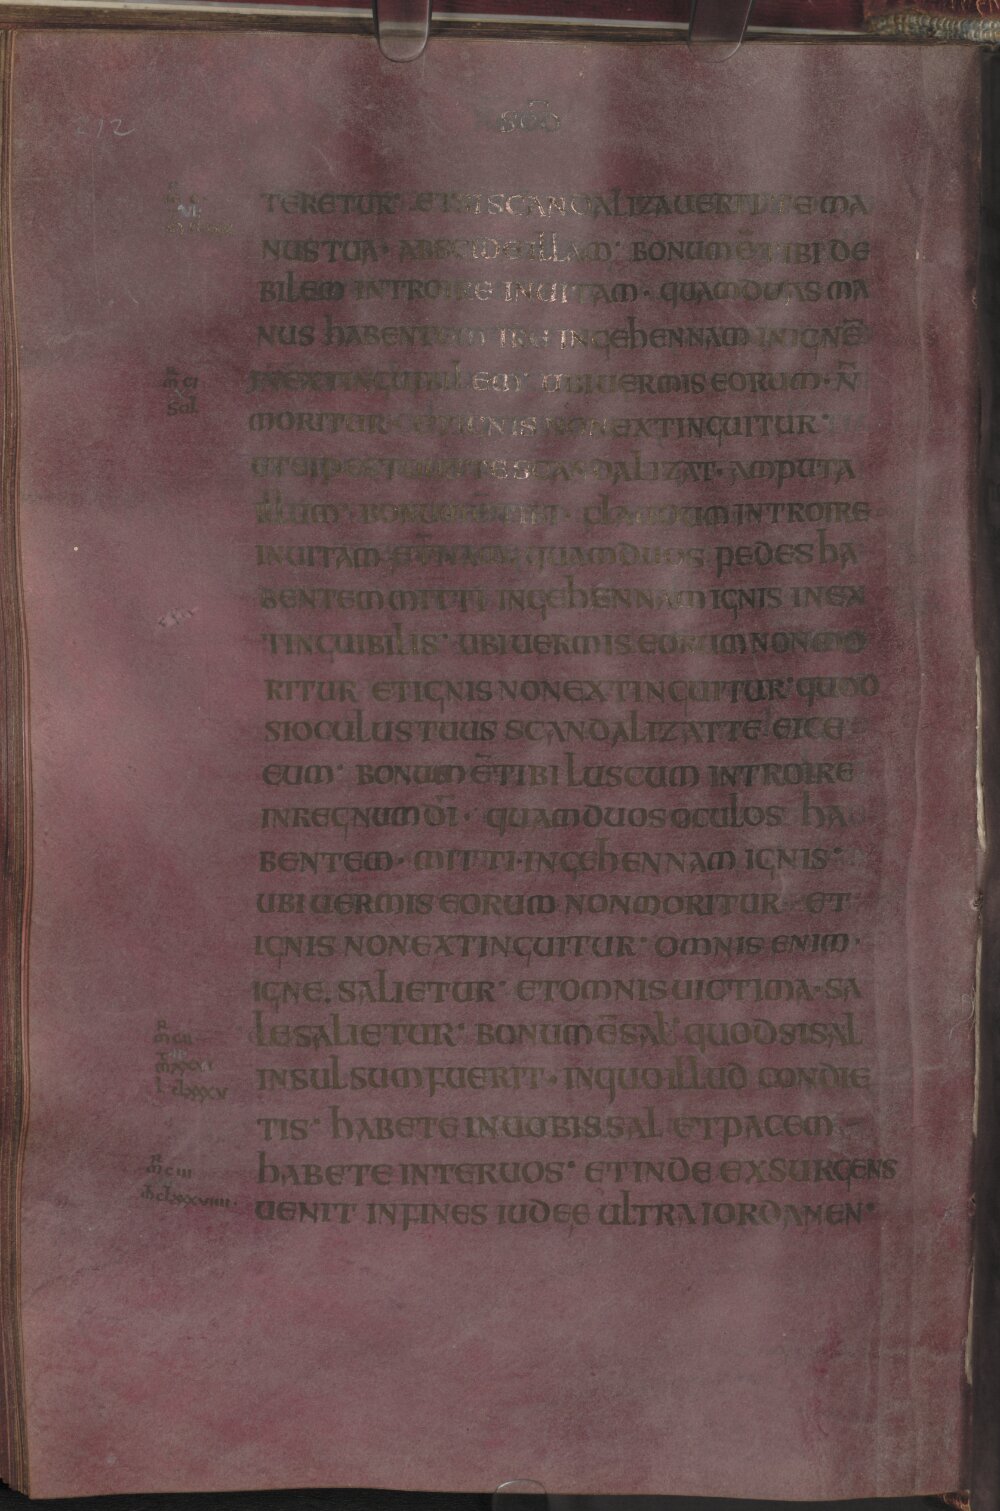 212
SCD̄
TERETUR· ETSISCANDALIZAUERITTEMA
NUSTUA· ABSCIDEILLAM· BONUMĒTIBIDE
BILEM INTROIRE INUITAM· QUAMDUASMA
NUS HABENTEM IRE INGEHENNAM INIGNĒ
INEXTINGUIBILEM UBIUERMISEORUM· N̄
MORITUR· ETIGNISNONEXTINGUITUR·
ETSIPESTUUSTESCANDALIZAT· AMPUTA
ILLUM· BONUMĒTIBI· CLAUDUMINTROIRE
INUITAM QUAMDUOS PEDESHA
BENTEMMITTI INGEHENNAMIGNIS INEX
TINGUIBILIS· UBIUERMISEORUMNONMO
RITUR ETIGNISNONEXTINGUITUR· QUOD
SIOCULUSTUUS SCANDALIZATTE EICE
EUM· BONUMĒTIBILUSCUM INTROIRE
INREGNUMDĪ· QUAMDUOSOCULOS HA
BENTEM· MITTI·INGEHENNAM IGNIS·
UBIUERMISEORUM NONMORITUR· ET
IGNIS NONEXTINGUITUR· OMNIS ENIM·
IGNE. SALIETUR· ETOMNISUICTIMA·SA
LESALIETUR· BONUMĒSAL· QUODSISAL
INSULSUMFUERIT· INQUOILLUD CONDIE
TIS· HABETE INUOBISSAL ETPACEM
HABETE INTERUOS· ETINDE EXSURGENS
UENIT INFINES IUDEĘ ULTRAIORDANEN·